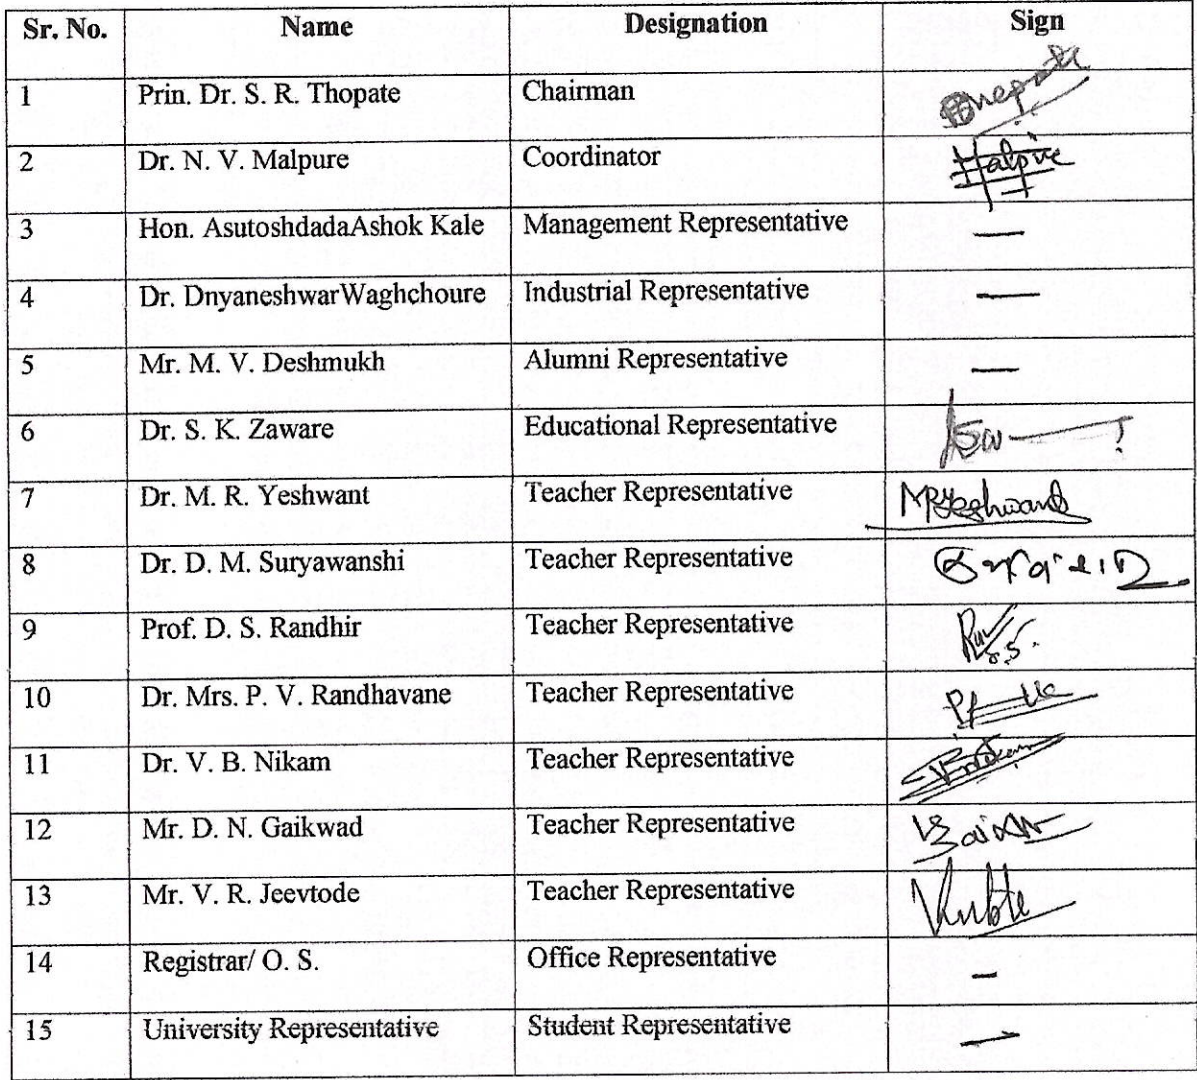 Sr. No. Name Designation Sign
1 Prin. Dr. S. R. Thopate Chairman
2 Dr. N. V. Malpure Coordinator
3 Hon. AsutoshdadaAshok Kale Management Representative —
4 Dr. DnyaneshwarWaghchoure Industrial Representative —
5 Mr. M. V. Deshmukh Alumni Representative —
6 Dr. S. K. Zaware Educational Representative
7 Dr. M. R. Yeshwant Teacher Representative MRYeshwant
8 Dr. D. M. Suryawanshi Teacher Representative
9 Prof. D. S. Randhir Teacher Representative
10 Dr. Mrs. P. V. Randhavane Teacher Representative
11 Dr. V. B. Nikam Teacher Representative
12 Mr. D. N. Gaikwad Teacher Representative
13 Mr. V. R. Jeevtode Teacher Representative
14 Registrar/ O. S. Office Representative —
15 University Representative Student Representative —